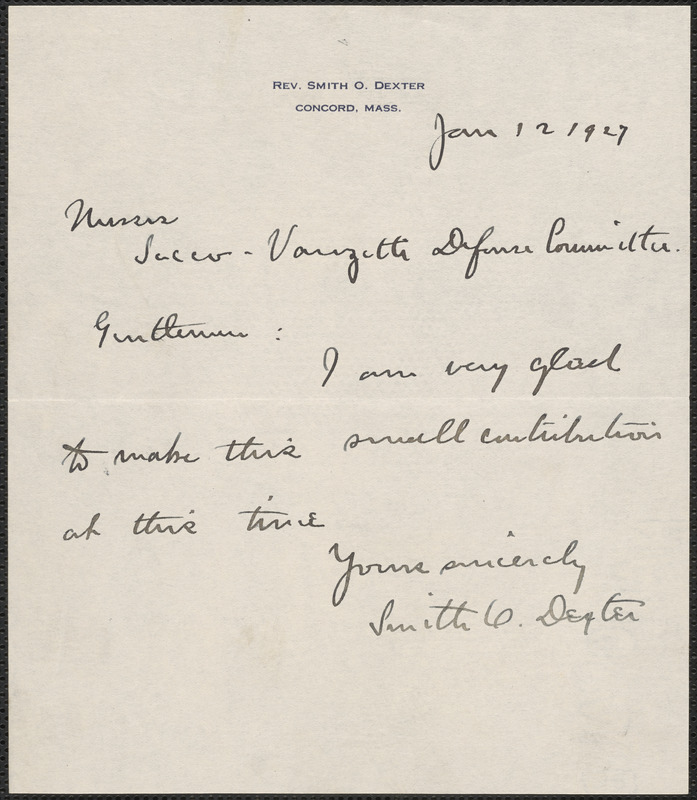 REV. SMITH O. DEXTER
CONCORD, MASS.
Jan 12 1927
Messrs
Sacco - Vanzetti Defense Committee.
Gentlemen :
I am very glad
to make this small contribution
at this time
Yours sincerely
Smith O. Dexter